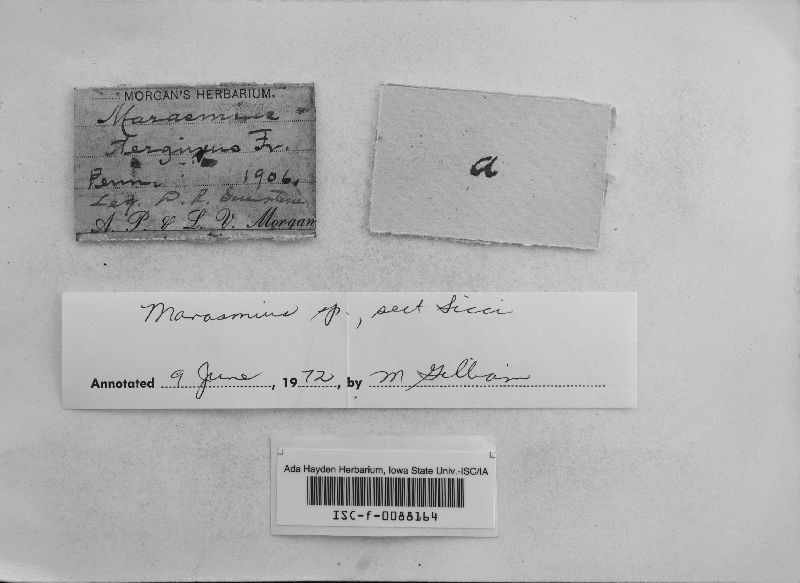 MORGAN'S HERBARIUM.
Marasmius
ferginus Fr.
Penn. 1906.
Leg. D. R. Sumstine
A. P. & L. V. Morgan
a
Marasmius sp., sect Sicci
Annotated 9 June, 1972, by M Gilliam
Ada Hayden Herbarium, Iowa State Univ.-ISC/IA
ISC-f-0088164